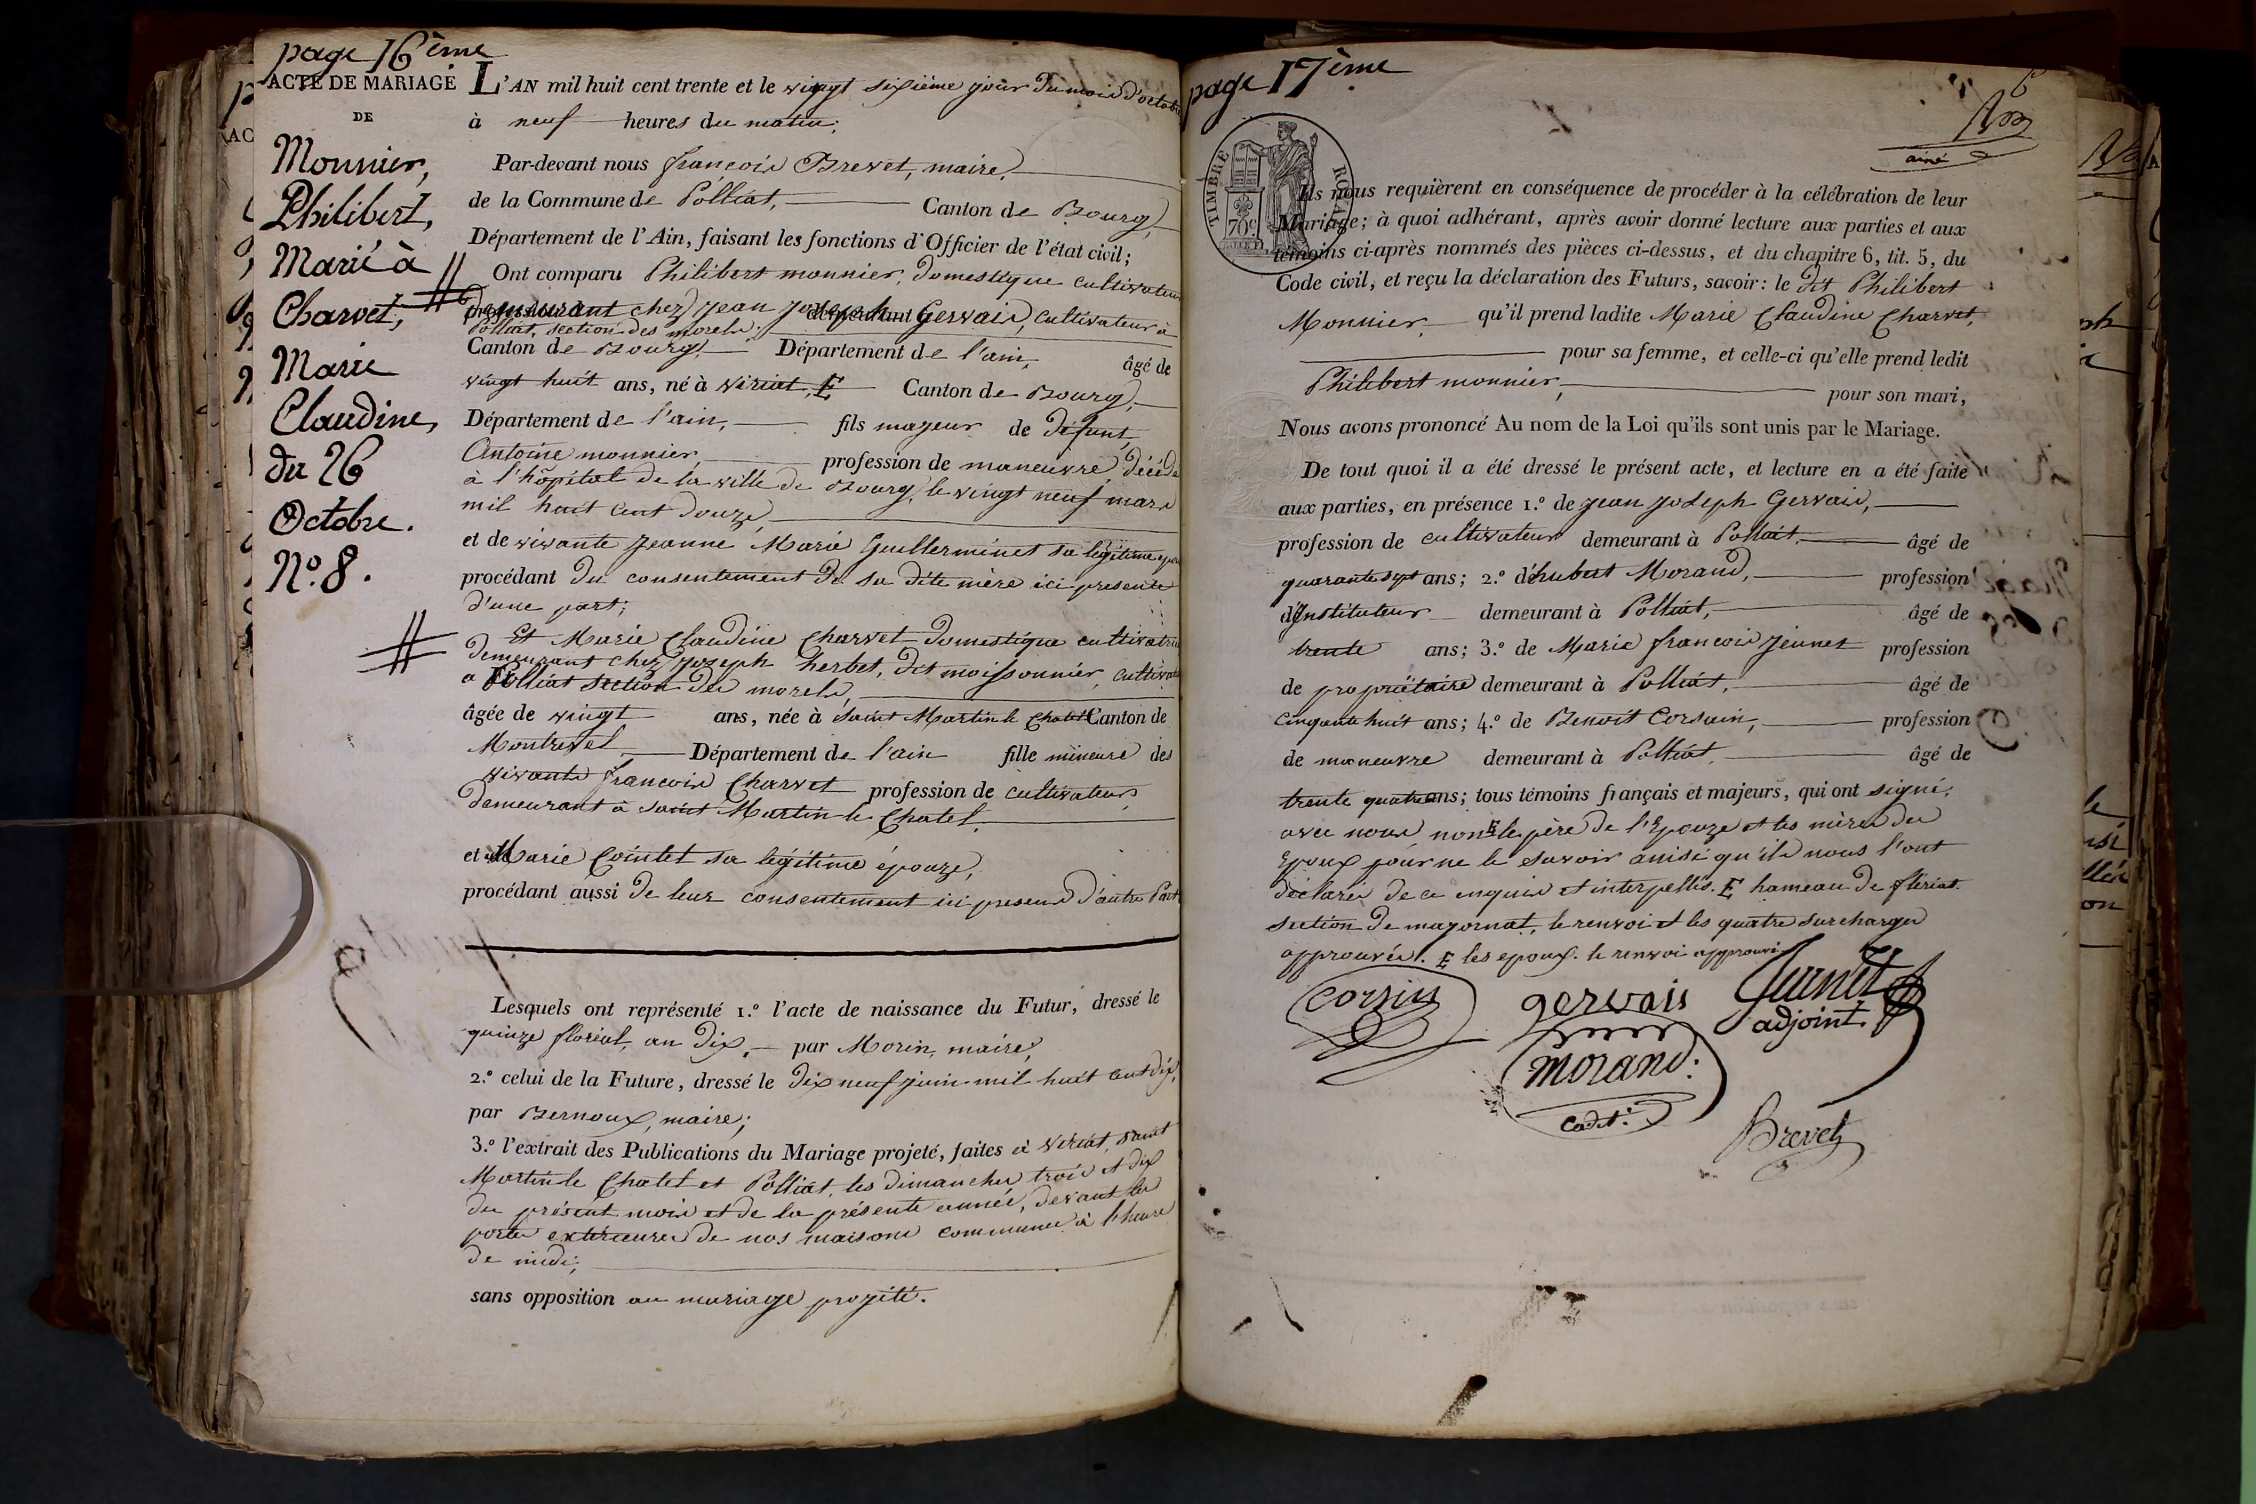 page 16ème
ACTE DE MARIAGE
DE
Monnier,
Philibert,
Marié à
Charvet,
Marie
Claudine,
du 26
Octobre.
N.º 8.
L'AN mil huit cent trente et le vingt sixième jour du mois d'octobre
à neuf heures du matin;
Par-devant nous françois Brevet, maire,
de la Commune de Polliat, Canton de Bourg,
Département de l'Ain, faisant les fonctions d'Officier de l'état civil;
Ont comparu Philibert monnier, domestique cultivateur
demeurant chez Jean Joseph Gervais, cultivateur à
Polliat, section des morels.
Canton de Bourg, Département de l'ain, âgé de
vingt huit ans, né à viriat, E Canton de Bourg,
Département de l'ain, fils mayeur de défunt
Antoine monnier profession de maneuvre, décédé
à l'hôpital de la ville de Bourg, le vingt neuf mars
mil huit cent douze,
et de vivante Jeanne Marie Guillerminet sa légitime
procédant du consentement de sa dite mère ici présente
d'une part;
Et Marie Claudine Charvet domestique cultivatrice
demeurant chez Joseph herbet, dit moissonnier, cultivateur
a Polliat section des morels,
âgée de vingt ans, née à saint Martin le chatel Canton de
Montrevel Département de l'ain fille mineure des
vivants françois Charvet profession de cultivateur,
demeurant à saint Martin le Chatel,
et Marie Cointet sa légitime épouze,
procédant aussi de leur consentement ici présens d'autre Part
Lesquels ont représenté 1.º l'acte de naissance du Futur, dressé le
quinze floréal, an dix, par Morin, maire,
2.º celui de la Future, dressé le dix neuf juin mil huit cent dix,
par Bernoux, maire;
3.º l'extrait des Publications du Mariage projeté, faites à viriat, saint
Martin le Chatel et Polliat, les dimanches trois et dix
du présent mois et de la présente année, devant les
portes extérieures de nos maisons communes à l'heure
de midi;
sans opposition au mariage projété.
page 17ème
ainé
TIMBRE ROYAL
70c
Ils nous requièrent en conséquence de procéder à la célébration de leur
Mariage; à quoi adhérant, après avoir donné lecture aux parties et aux
témoins ci-après nommés des pièces ci-dessus, et du chapitre 6, tit. 5, du
Code civil, et reçu la déclaration des Futurs, savoir: le dit Philibert
Monnier, qu'il prend ladite Marie Claudine Charvet,
pour sa femme, et celle-ci qu'elle prend ledit
Philibert monnier, pour son mari,
Nous avons prononcé Au nom de la Loi qu'ils sont unis par le Mariage.
De tout quoi il a été dressé le présent acte, et lecture en a été faite
aux parties, en présence 1.º de Jean Joseph Gervais,
profession de cultivateur demeurant à Polliat, âgé de
quarante sept ans; 2.º d'hubert Morand, profession
d'Instituteur demeurant à Polliat, âgé de
trente ans; 3.º de Marie françois Jeunet profession
de propriétaire demeurant à Polliat, âgé de
cinquante huit ans; 4.º de Benoit Corsain, profession
de maneuvre demeurant à Polliat, âgé de
trente quatre ans; tous témoins français et majeurs, qui ont signé,
avec nous, non E le père de l'Epouze et les mères des
Epoux pour ne le savoir ainsi qu'ils nous l'ont
déclarés de ce enquis et interpellés. E hameau de fleriat
section de mayornat, le renvoi et les quatre surcharges
approuvés. E les epoux. le renvoi approuvé
Corsin
gervais
Jeunet
adjoint
morand:
cadet.
Brevet